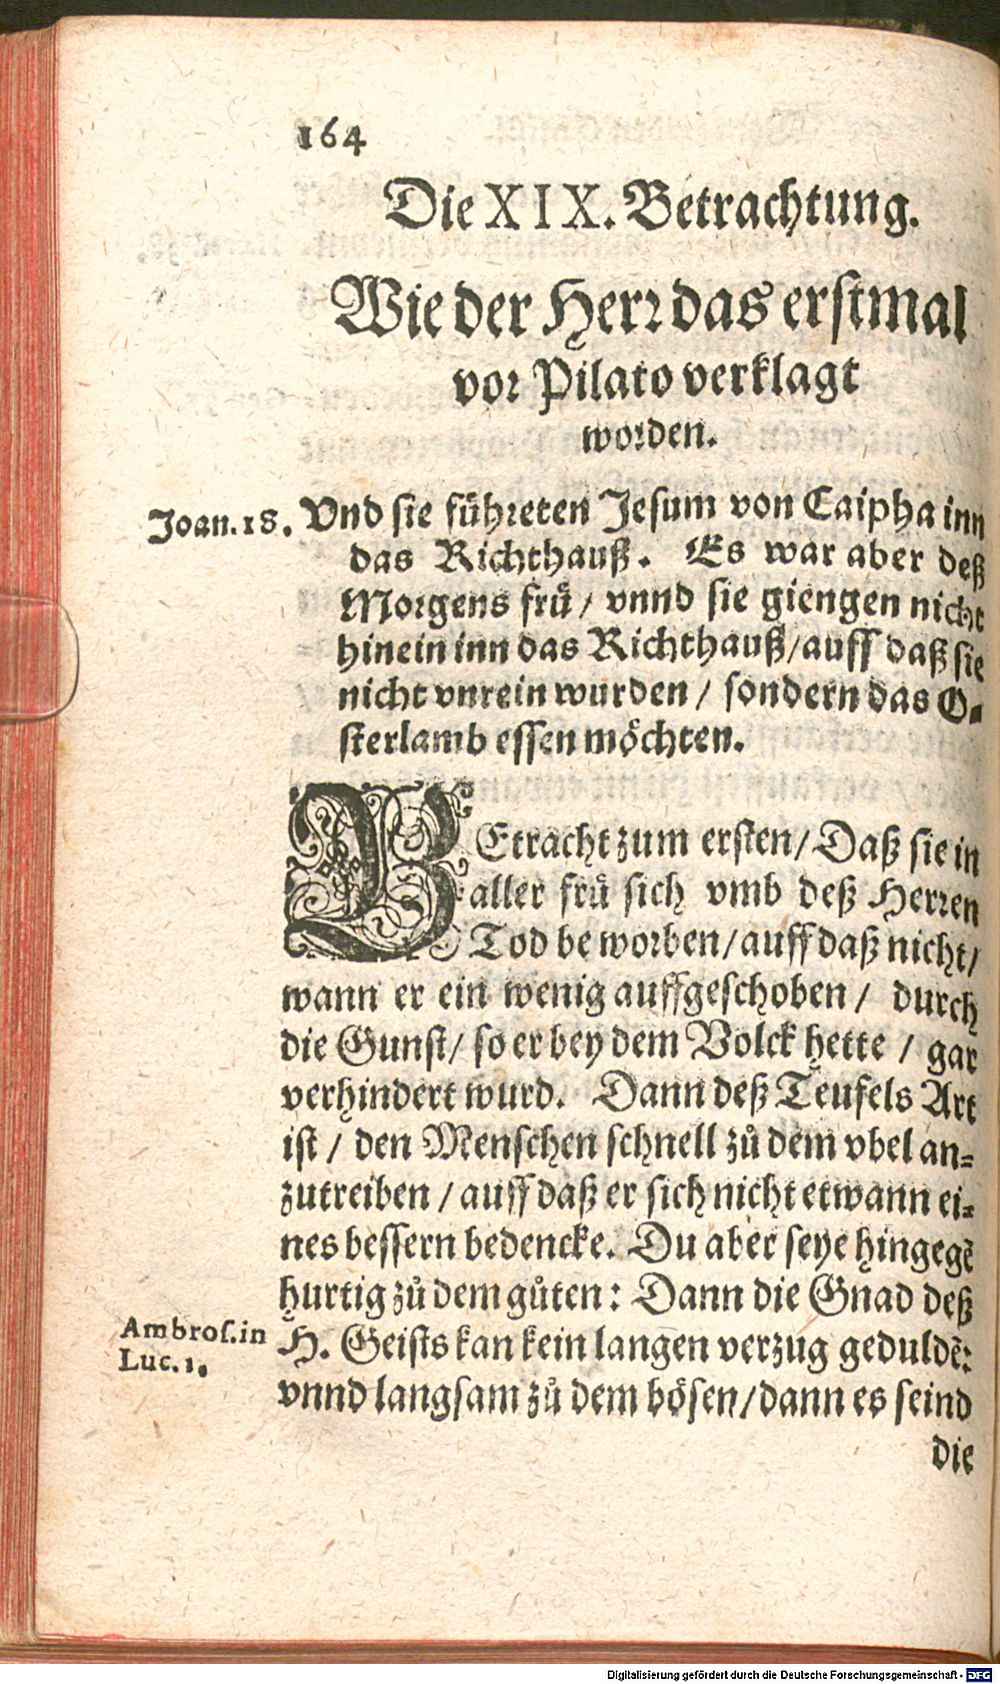 164
Die XIX. Betrachtung.
Wie der Herr das erstmal
vor Pilato verklagt
worden.
Joan. 18.
Vnd sie führeten Jesum von Caipha inn
das Richthauß. Es war aber deß
Morgens frů / vnnd sie giengen nicht
hinein inn das Richthauß / auff daß sie
nicht vnrein wurden / sondern das O⸗
sterlamb essen möchten.
BEtracht zum ersten / Daß sie in
aller frů sich vmb deß Herren
Tod beworben / auff daß nicht /
wann er ein wenig auffgeschoben / durch
die Gunst / so er bey dem Volck hette / gar
verhindert wurd. Dann deß Teufels Art
ist / den Menschen schnell zů dem vbel an⸗
zutreiben / auff daß er sich nicht etwann ei⸗
nes bessern bedencke. Du aber seye hingegē
hurtig zů dem gůten: Dann die Gnad deß
Ambros. in
Luc. 1.
H. Geists kan kein langen verzug geduldē:
vnnd langsam zů dem bösen / dann es seind
die
Digitalisierung gefördert durch die Deutsche Forschungsgemeinschaft - DFG